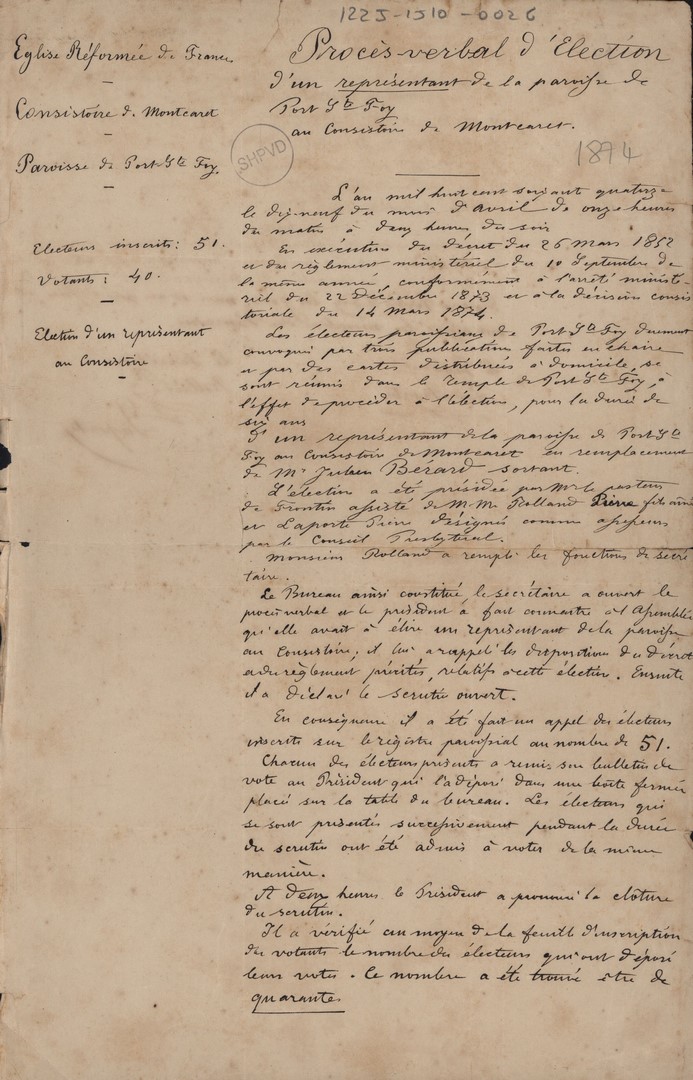 1225-1J10-0026
Eglise Réformée de France
Consistoire de Montcaret
Paroisse de Port Ste Foy.
Electeurs inscrits : 51.
Votants : 40.
Election d'un représentant
au Consistoire
SHPVD
1894
Procès-verbal d'Election
d'un représentant de la paroisse de
Port Ste Foy
au Consistoire de Montcaret.
L'an mil huit cent soixante quatorze
le dix-neuf du mois d'Avril de onze heures
du matin à deux heures du soir
En exécution du décret du 26 Mars 1852
et du règlement ministériel du 10 Septembre de
la même année, conformément à l'arrêté ministé-
riel du 22 décembre 1873 et à la décision consis
toriale du 14 Mars 1874.
Les électeurs paroissiaux de Port Ste Foy dument
convoqués par trois publications faites en chaire
et par des cartes distribuées à domicile, se
sont réunis dans le temple de Port Ste Foy, à
l'effet de procéder à l'élection, pour la durée de
six ans
D'un représentant de la paroisse de Port Ste
Foy au Consistoire de Montcaret en remplacement
de Mr Julien Bérard sortant.
L'élection a été présidée par Mr le pasteur
de Frontin assisté de M.M. Rolland Pierre fils aîné
et Laporte Pierre désignés comme assesseurs
par le Conseil Presbytéral.
Monsieur Rolland a rempli les fonctions de secré
taire.
Le Bureau ainsi constitué, le secrétaire a ouvert le
procès verbal et le président a fait connaître à l'Assemblée
qu'elle avait à élire un représentant de la paroisse
au Consistoire ; il lui a rappelé les dispositions du décret
et du règlement précités, relatifs à cette élection. Ensuite
il a déclaré le scrutin ouvert.
En conséquence il a été fait un appel des électeurs
inscrits sur le registre paroissial au nombre de 51.
Chacun des électeurs présents a remis son bulletin de
vote au Président qui l'a déposé dans une boîte fermée
placée sur la table du bureau. Les électeurs qui
se sont présentés successivement pendant la durée
du scrutin ont été admis à voter de la même
manière.
A deux heures le Président a prononcé la clôture
du scrutin.
Il a vérifié au moyen de la feuille d'inscription
des votants le nombre des électeurs qui ont déposé
leurs votes. Ce nombre a été trouvé être de
quarante